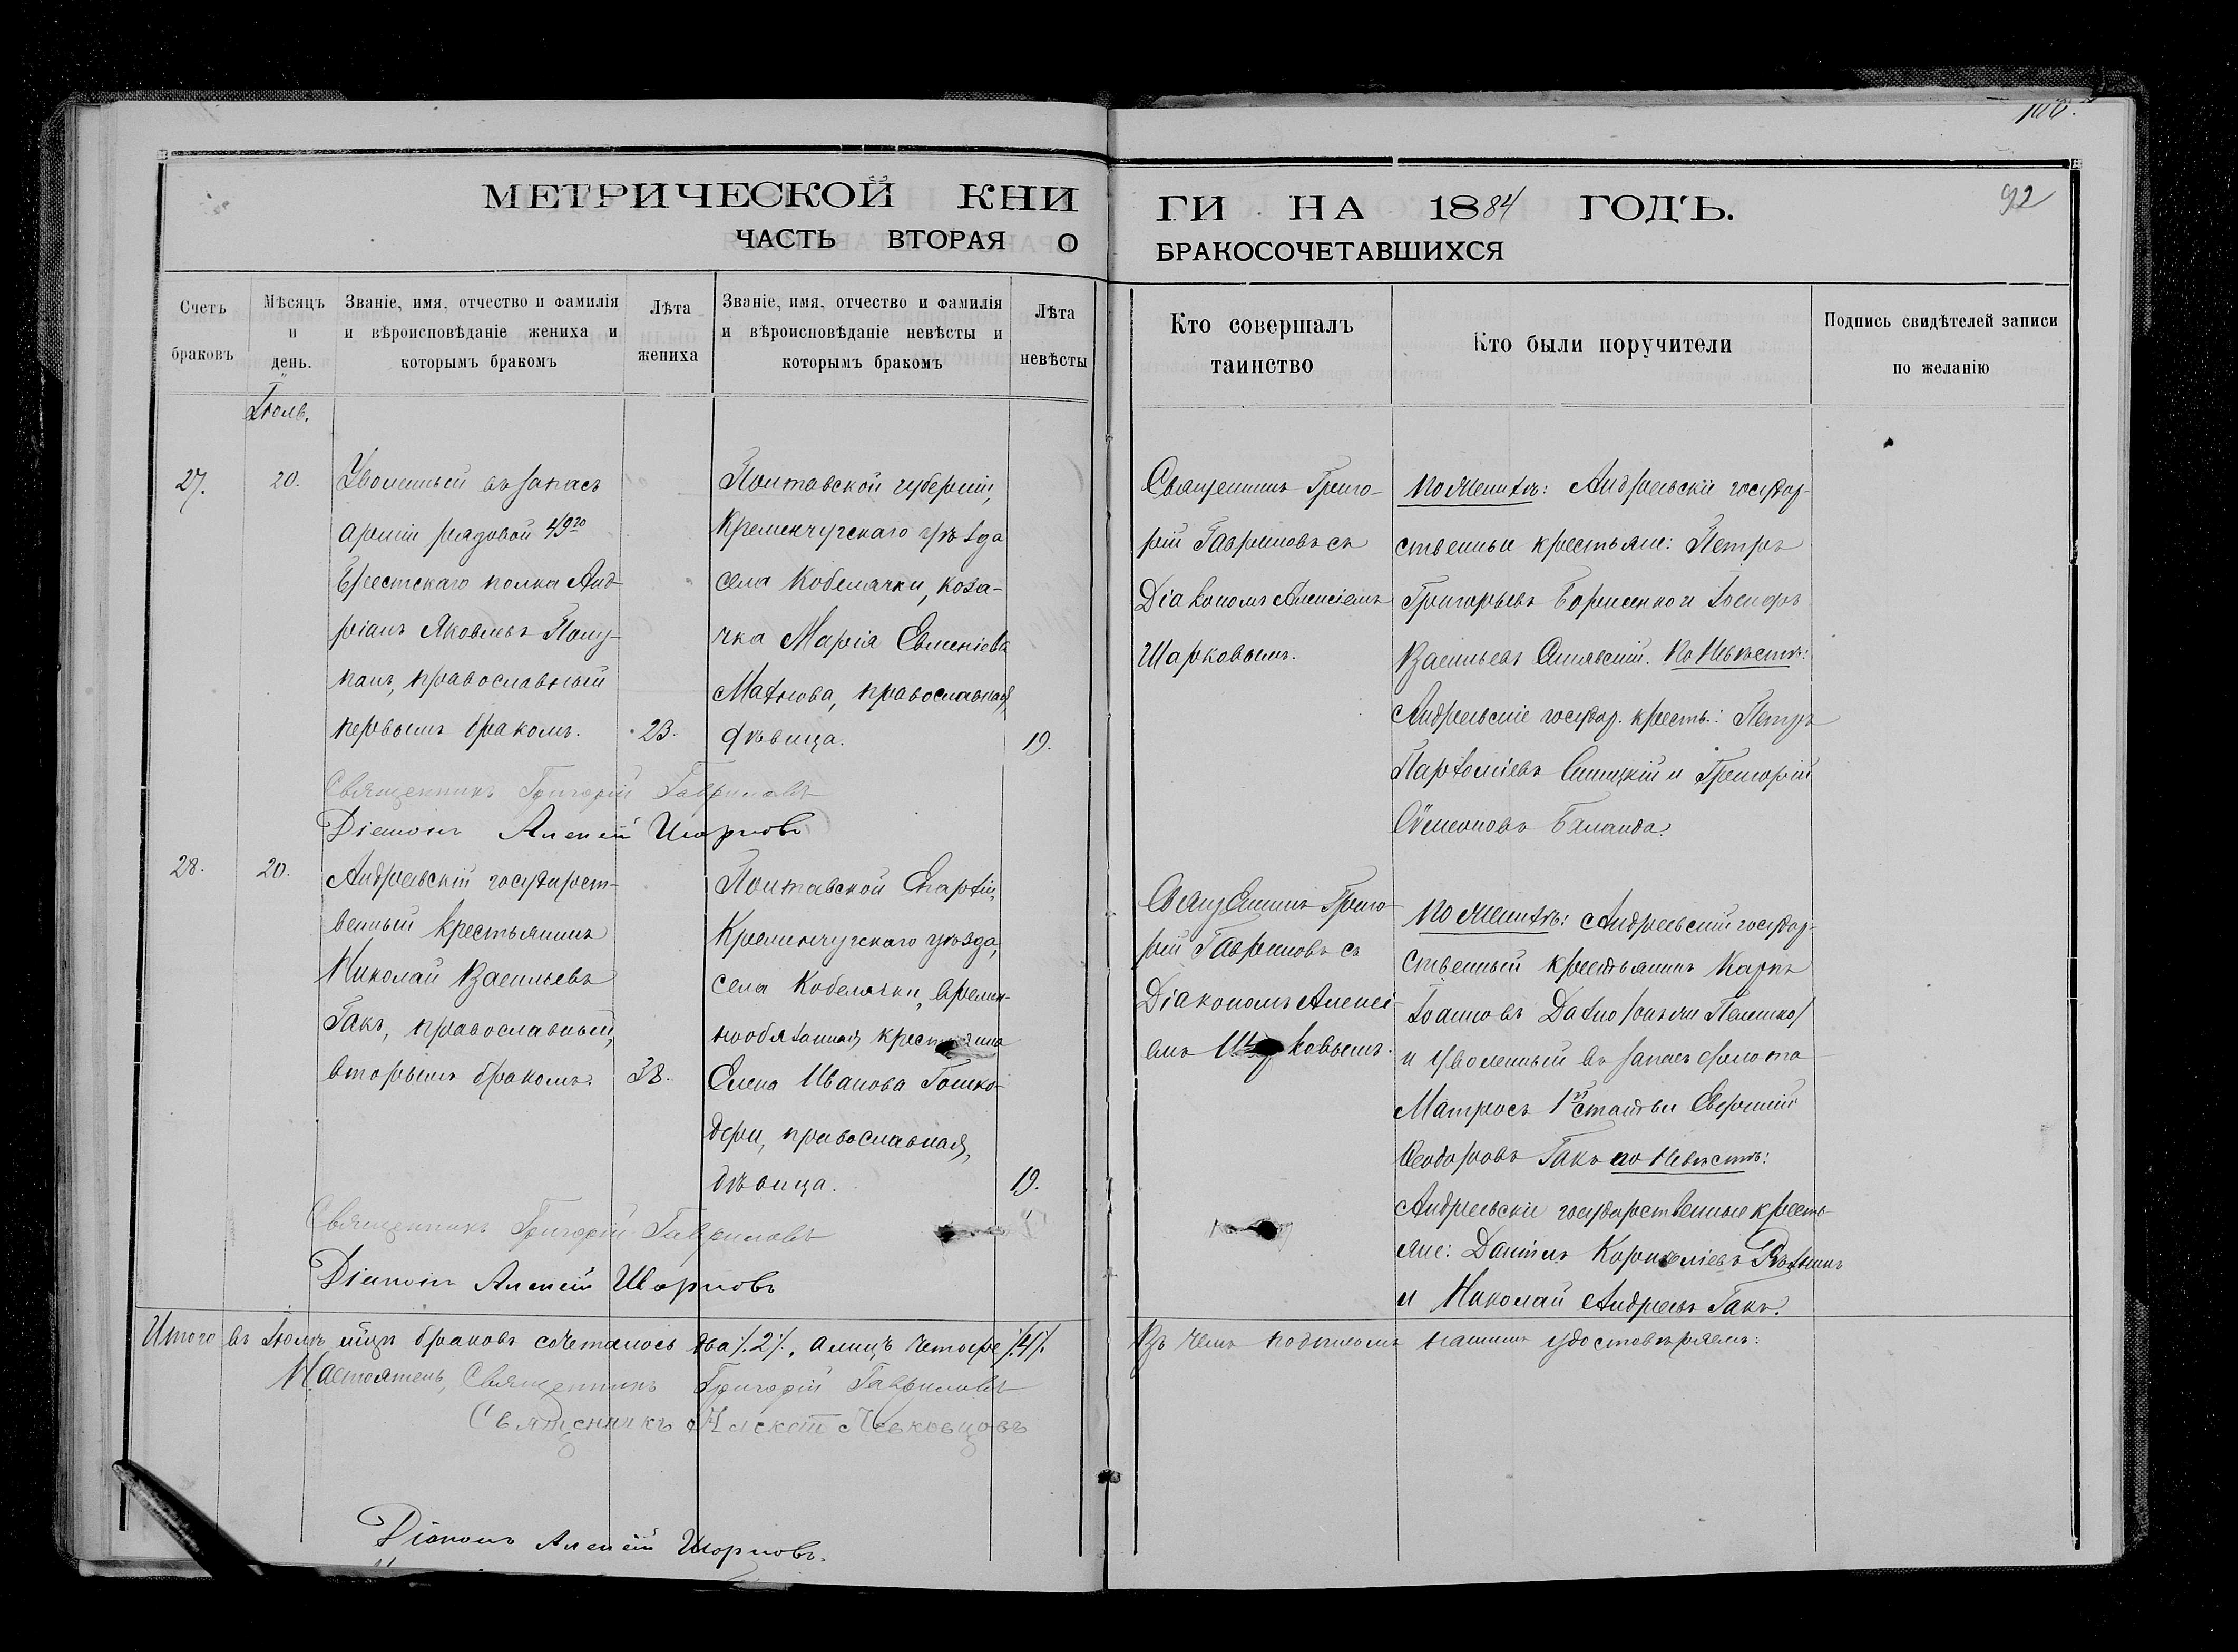 МЕТРИЧЕСКОЙ КНИ
ЧАСТЬ ВТОРАЯ О
Счетъ браковъ
Мѣсяцъ и день.
Званіе, имя, отчество и фамилія
и вѣроисповѣданіе жениха и
которымъ бракомъ
Лѣта жениха
Званіе, имя, отчество и фамилія
и вѣроисповѣданіе невѣсты и
которымъ бракомъ
Лѣта невѣсты
Іюль.
27.
20.
Уволенный въ запасъ
арміи рядовой 49го
Брестскаго полка Анд-
ріанъ Яковлевъ
православный
первымъ бракомъ.
23.
Полтавской губерніи,
Кременчугскаго уѣзда
села Кобелячки, коза-
чка Марія Евменіева
православная,
дѣвица.
19.
Священникъ Григорій Гавриловъ
Діаконъ Алексій Шарковъ
28.
20.
Андреевскій государст-
венный крестьянинъ
Николай Васильевъ
Гакъ, православный,
вторымъ бракомъ.
38.
Полтавской Епархіи,
Кременчугскаго уѣзда,
села Кобелячки, времен-
нообязанная
Елена Иванова Гошко-
дери, православная,
дѣвица.
19.
Священникъ Григорій Гавриловъ
Діаконъ Алексій Шарковъ
Итого въ Іюлѣ мцѣ браковъ сочеталось два /.2/., а лицъ четыре /.4/.
Настоятель, Священникъ Григорій Гавриловъ
Священникъ Алексій Левковцовъ
Діаконъ Алексій Шарковъ.
92
ГИ НА 1884 ГОДЪ.
БРАКОСОЧЕТАВШИХСЯ
Кто совершалъ
таинство
Кто были поручители
Подпись свидѣтелей записи
по желанію
Священникъ Григо-
рій Гавриловъ съ
Діакономъ Алексіемъ
Шарковымъ.
По женихѣ: Андреевскіе государ-
ственные крестьяне: Петръ
Григорьевъ Борисенко и Іосифъ
Васильевъ По невѣстѣ:
Андреевскіе государ. кресть.: Петръ
Синицкій и Григорій
Симеоновъ Баланда.
Священникъ Григо-
рій Гавриловъ съ
Діакономъ Алексі-
емъ
По женихѣ: Андреевскій государ-
ственный крестьянинъ Карпъ
Іоанновъ
и уволенный въ запасъ флота
Матросъ 1й статьи
Ѳеодоровъ Гакъ по невѣстѣ:
Андреевскіе государственные кресть-
яне: Даніилъ Корниліевъ
и Николай Андреевъ Гакъ.
Въ чемъ подписомъ нашимъ удостовѣряемъ: